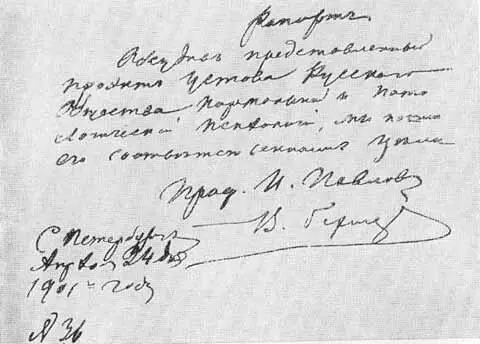 Рапортъ.
Обсудивъ представленный
проэктъ Устава Русскаго
Общества Нормальной и Пато
логической Психологіи, мы нашли
его
Проф. И. Павловъ
В.
С Петербургъ
Апрѣля 24 дня
1901 – года
№ 36